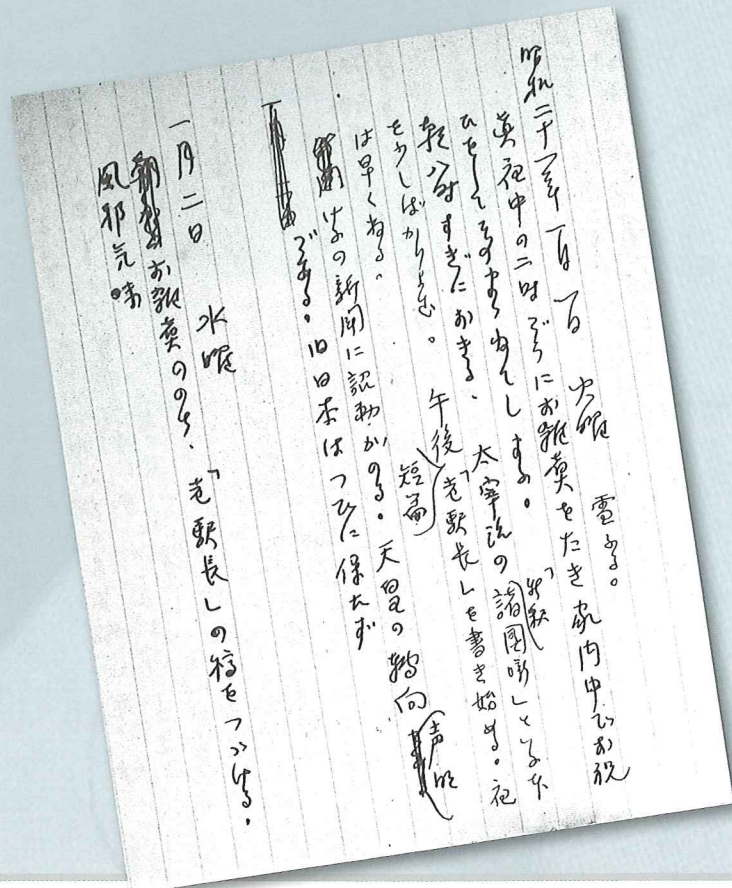 昭和二十一年一月一日 火曜 雪ふる。
真夜中の二時ごろにお雑煮をたき家内中でお祝
ひをしてそのまゝねてしまふ。
朝八時すぎにおきる、太宰治の「新釈諸國噺」といふ本
を少しばかりよむ。午後短篇「老駅長」を書き始める。夜
は早くねる。
けふの新聞に詔勅がのる。天皇の轉向声明
である。旧日本はつひに保たず
一月二日 水曜
お雑煮ののち、「老駅長」の稿をつづける。
風邪気味